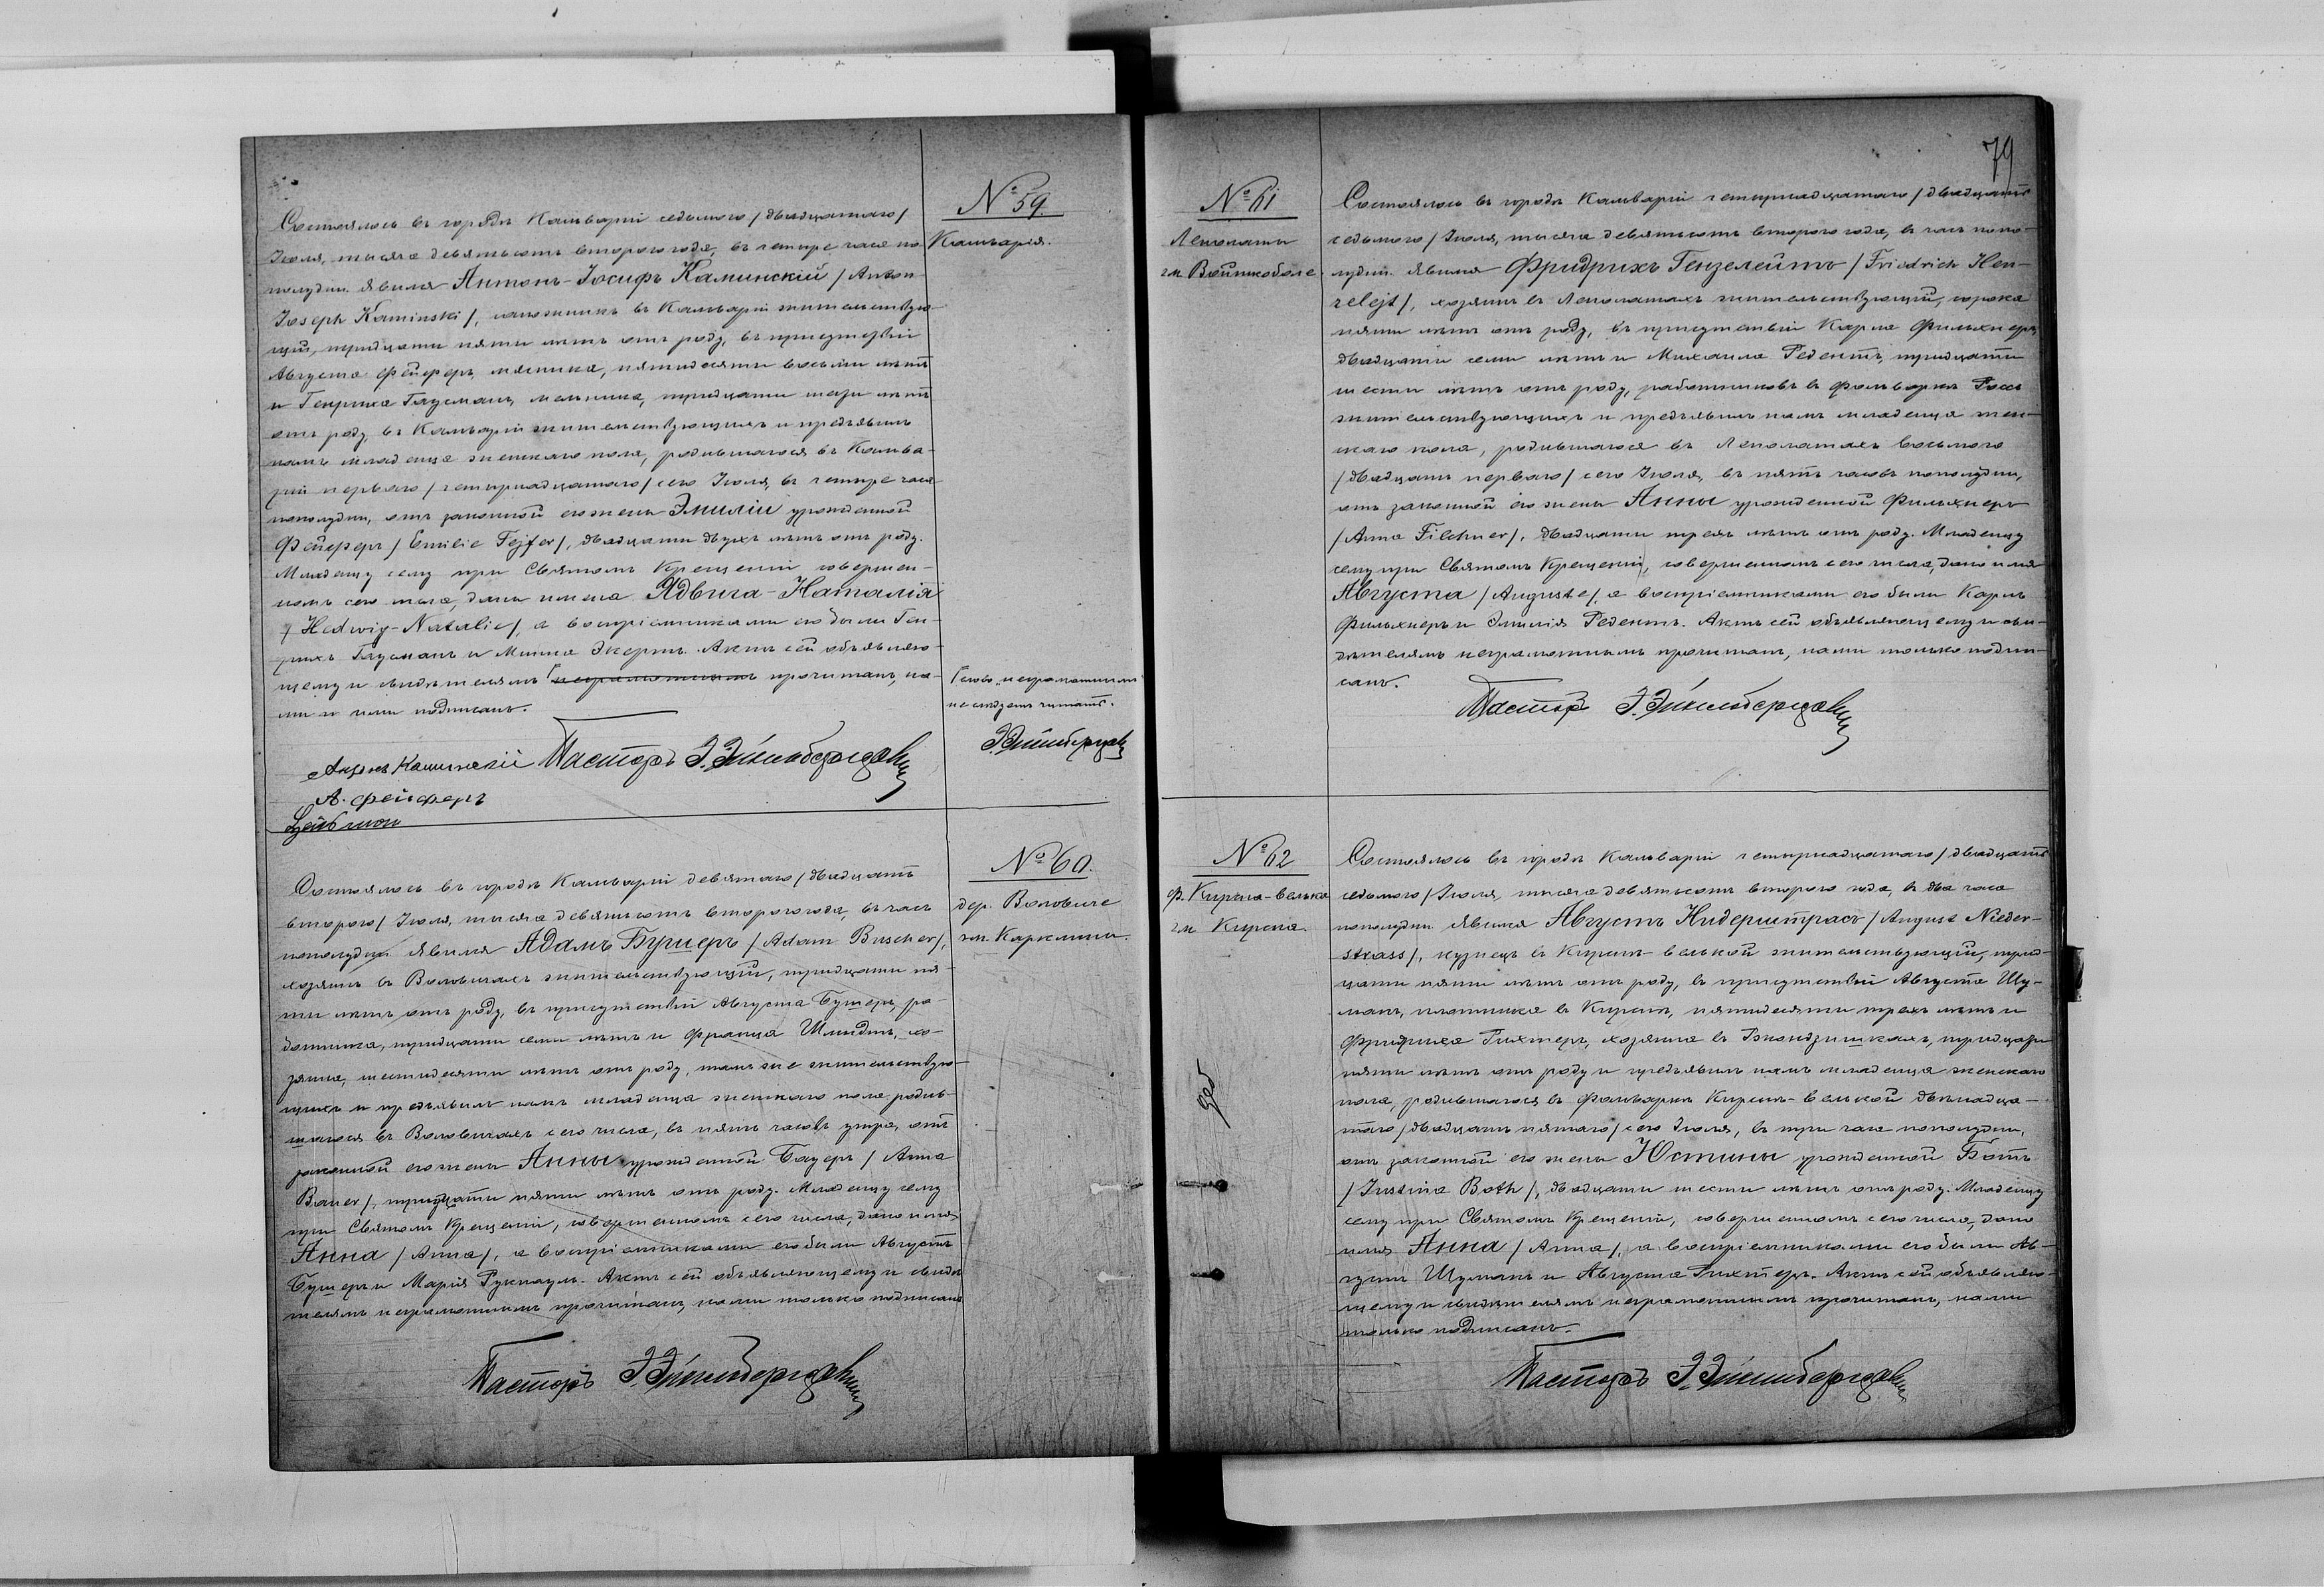 № 59.
Кальварія.
Состоялось въ городѣ Кальваріи седьмого /двадцатаго/
Іюля, тысяча девятьсотъ второго года, въ четыре часа по
полудни. Явился Антонъ-Іосифъ Каминскій /Anton-
Joseph Kaminski/, сапожникъ въ Кальваріи жительствую-
щій, тридцати пяти лѣтъ отъ роду, въ присутствіи
Августа Фейферъ, мясника, пятидесяти восьми лѣтъ
и Генриха Гаусманъ, мельника, тридцати лѣтъ
отъ роду, въ Кальваріи жительствующихъ и предъявилъ
намъ младенца женскаго пола, родившагося въ Кальва-
ріи перваго /четырнадцатаго/ сего Іюля, въ четыре часа
пополудни, отъ законной его жены Эмиліи урожденной
Фейферъ /Emilie Fejfer/, двадцати двухъ лѣтъ отъ роду.
Младенцу сему при Святомъ Крещеніи, совершен-
номъ сего числа, даны имена Ядвига-Наталія
/Hedwig-Natalie/, а воспріемниками его были Ген-
рихъ Гаусманъ и Минна Экертъ. Актъ сей объявляю-
щему и свидѣтелямъ неграмотнымъ прочитанъ, на-
ми и ими подписанъ.
Слово „неграмотнымъ"
не слѣдуетъ читать.
Антонъ Каминскій Пасторъ
А. Фейферъ
№ 60.
дер. Воловиче
гм. Каркляны.
Состоялось въ городѣ Кальваріи девятаго /двадцать
второго/ Іюля, тысяча девятьсотъ второго года, въ часъ
пополудни. Явился Адамъ Бушеръ /Adam Buscher/,
хозяинъ въ Воловичахъ жительствующій, тридцати пя-
ти лѣтъ отъ роду, въ присутствіи Августа Бушеръ, ра-
ботника, тридцати семи лѣтъ и Франца Шмидтъ, хо-
зяина, шестидесяти лѣтъ отъ роду, тамъ же жительствую-
щихъ и предъявилъ намъ младенца женскаго пола родив-
шагося въ Воловичахъ сего числа, въ пять часовъ утра, отъ
законной его жены Анны урожденной Бауеръ /Anna
Bauer/, тридцати пяти лѣтъ отъ роду. Младенцу сему
при Святомъ Крещеніи, совершенномъ сего числа, дано имя
Анна /Anna/, а воспріемниками его были Августъ
Бушеръ и Марія Рукпауль. Актъ сей объявляющему и свидѣ-
телямъ неграмотнымъ прочитанъ, нами только подписанъ
Пасторъ
79
№ 61
Лекопаты
гм. Войткоболе.
Состоялось въ городѣ Кальваріи четырнадцатаго /двадцать
седьмого/ Іюля, тысяча девятьсотъ второго года, въ часъ попо-
лудни. Явился Фридрихъ Гензелейтъ /Friedrich Hen-
zelejt/, хозяинъ въ жительствующій, сорока
пяти лѣтъ отъ роду, въ присутствіи Карла Фильхнеръ,
двадцати семи лѣтъ и Михаила Редентъ, тридцати
шести лѣтъ отъ роду, работниковъ въ фольваркѣ
жительствующихъ и предъявилъ намъ младенца жен-
скаго пола, родившагося въ восьмого
/двадцать перваго/ сего Іюля, въ пять часовъ пополудни,
отъ законной его жены Анны урожденной Фильхнеръ
/Anna Filchner/, двадцати трехъ лѣтъ отъ роду. Младенцу
сему при Святомъ Крещеніи, совершенномъ сего числа, дано имя
Августа /Auguste/, а воспріемниками его были Карлъ
Фильхнеръ и Эмилія Редентъ. Актъ сей объявляющему и сви-
дѣтелямъ неграмотнымъ прочитанъ, нами только подпи-
санъ.
Пасторъ
№ 62
ф. Кирсна-велька
гм. Кирсна.
Состоялось въ городѣ Кальваріи четырнадцатаго /двадцать
седьмого/ Іюля, тысяча девятьсотъ второго года, въ два часа
пополудни. Явился Августъ Нидерштрасъ /August Nieder-
strass/, кузнецъ въ Кирснѣ-велькой жительствующій, трид-
цати пяти лѣтъ отъ роду, въ присутствіи Августа Шу-
манъ, плотника въ Кирснѣ, пятидесяти трехъ лѣтъ и
Фридриха Рихтеръ, хозяина въ тридцати
пяти лѣтъ отъ роду и предъявилъ намъ младенца женскаго
пола, родившагося въ фольваркѣ Кирснѣ-велькой двѣнадца-
таго /двадцать пятаго/ сего Іюля, въ три часа пополудни,
отъ законной его жены Юстины урожденной Ботъ
/Justina Both/, двадцати шести лѣтъ отъ роду. Младенцу
сему при Святомъ Крещеніи, совершенномъ сего числа, дано
имя Анна /Anna/, а воспріемниками его были Ав-
густъ Шуманъ и Августа Рихтеръ. Актъ сей объявляю-
щему и свидѣтелямъ неграмотнымъ прочитанъ, нами
только подписанъ.
Пасторъ